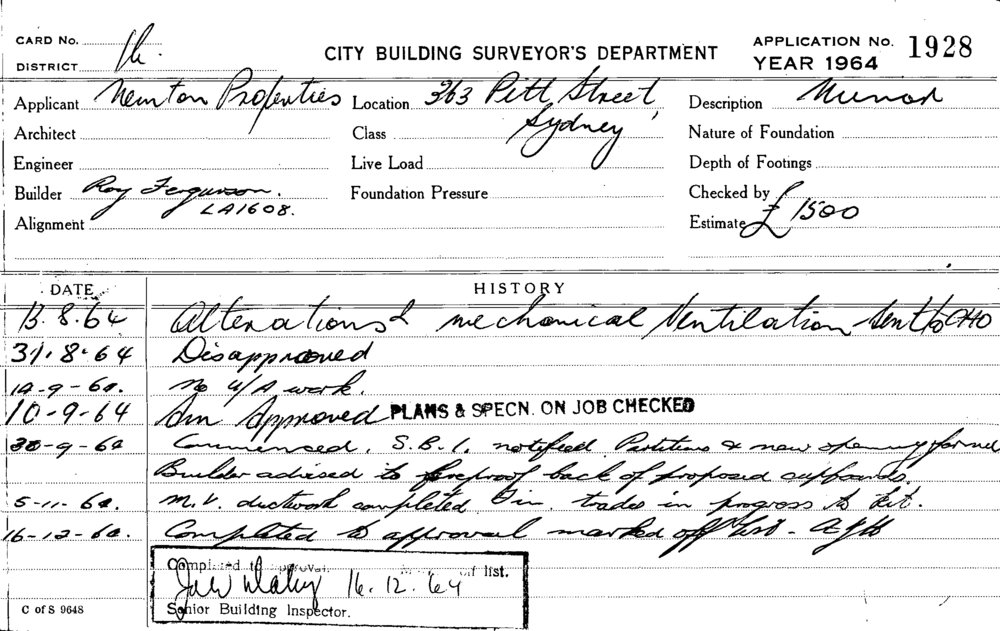 CARD No.
DISTRICT
CITY BUILDING SURVEYOR'S DEPARTMENT
APPLICATION No. 1928
YEAR 1964
Applicant Newton Properties Location 363 Pitt Street, Description Minor
Sydney
Architect Class Nature of Foundation
Engineer Live Load Depth of Footings
Builder Roy Ferguson. Foundation Pressure Checked by
LA1608.
Alignment Estimate £1500
DATE HISTORY
13.8.64 Alterations & mechanical Ventilation Sent to CHO
31.8.64 Disapproved
14-9-64. No U/A work.
10-9-64 Am Approved PLANS & SPECN. ON JOB CHECKED
30-9-64 Commenced. S.B.I. notified. Partitions & new opening formed
Builder advised to fireproof back of proposed cupboards.
5-11-64. M.V. ductwork completed. Fin. trades in progress to Kit.
16-12-64. Completed to approval marked off list -
Completed to approval. of list.
16.12.64
Senior Building Inspector.
C of S 9648